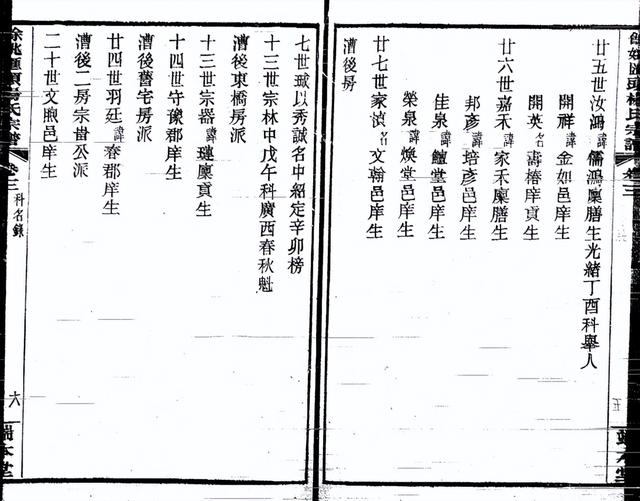 廿五世汝鴻諱儒鴻廩膳生光緒丁酉科舉人
開祥諱金如邑庠生
開英名壽椿庠貢生
廿六世嘉禾諱家禾廩膳生
邦彥諱培彥邑庠生
佳泉諱鱣堂邑庠生
榮泉諱煥堂邑庠生
廿七世家湞名文翰邑庠生
漕後房
五
七世瑊以秀誠名中紹定辛卯榜
十三世宗林中戊午科廣西春秋魁
漕後東橋房派
十三世宗器諱璉廩貢生
十四世守豫郡庠生
漕後舊宅房派
廿四世羽廷諱春郡庠生
漕後二房宗晝公派
二十世文煦邑庠生
卷三
科名錄
六